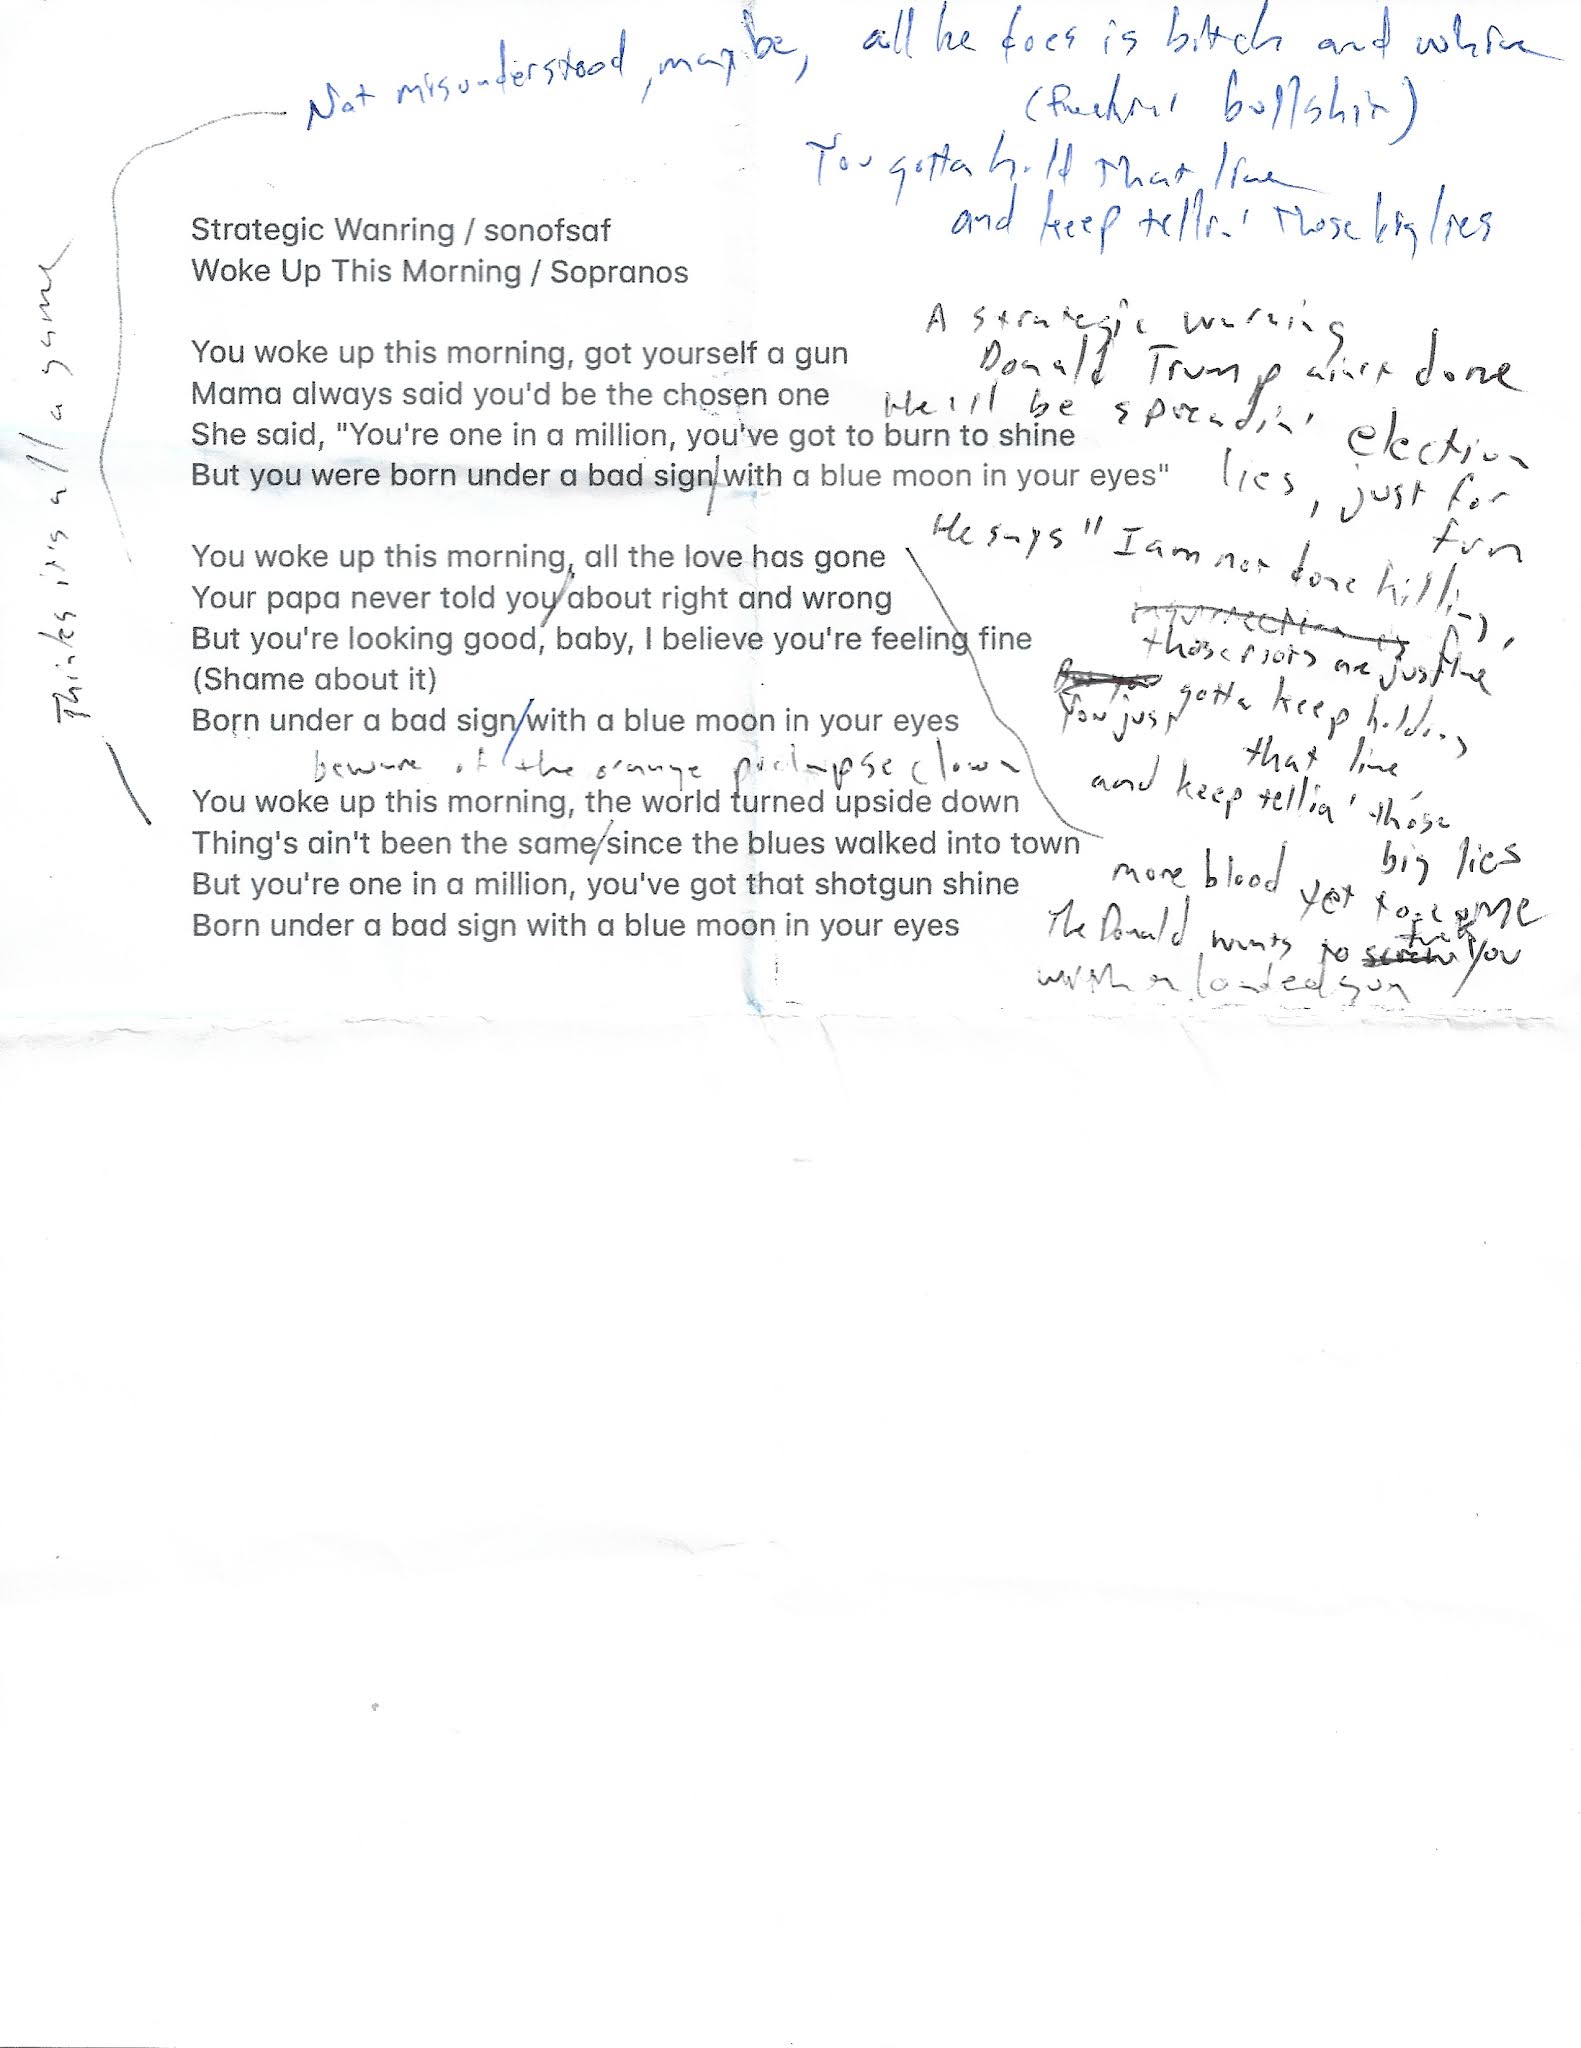 Not misunderstood, maybe, all he does is bitch and whine
(fuckin' bullshit)
You gotta hold that line
and keep tellin' those big lies
Thinks it's all a game
Strategic Wanring / sonofsaf
Woke Up This Morning / Sopranos
You woke up this morning, got yourself a gun
Mama always said you'd be the chosen one
She said, "You're one in a million, you've got to burn to shine
But you were born under a bad sign/with a blue moon in your eyes"
You woke up this morning, all the love has gone
Your papa never told you/about right and wrong
But you're looking good, baby, I believe you're feeling fine
(Shame about it)
Born under a bad sign/with a blue moon in your eyes
beware of the orange clown
You woke up this morning, the world turned upside down
Thing's ain't been the same/since the blues walked into town
But you're one in a million, you've got that shotgun shine
Born under a bad sign with a blue moon in your eyes
A strategic warning
Donald Trump ain't done
He'll be spreadin' election
lies, just for
fun
He says "I am not done killing,
insurrection is
those riots are just fine
You just gotta keep holding
that line
and keep tellin' those
big lies
more blood yet to come
The Donald wants to screw fuck you
with a loaded gun